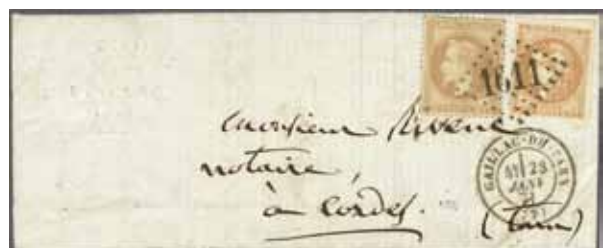 1611
monsieur
notaire,
à Cordes. (Tarn)
GAILLAC-DU-TARN
28
JANV